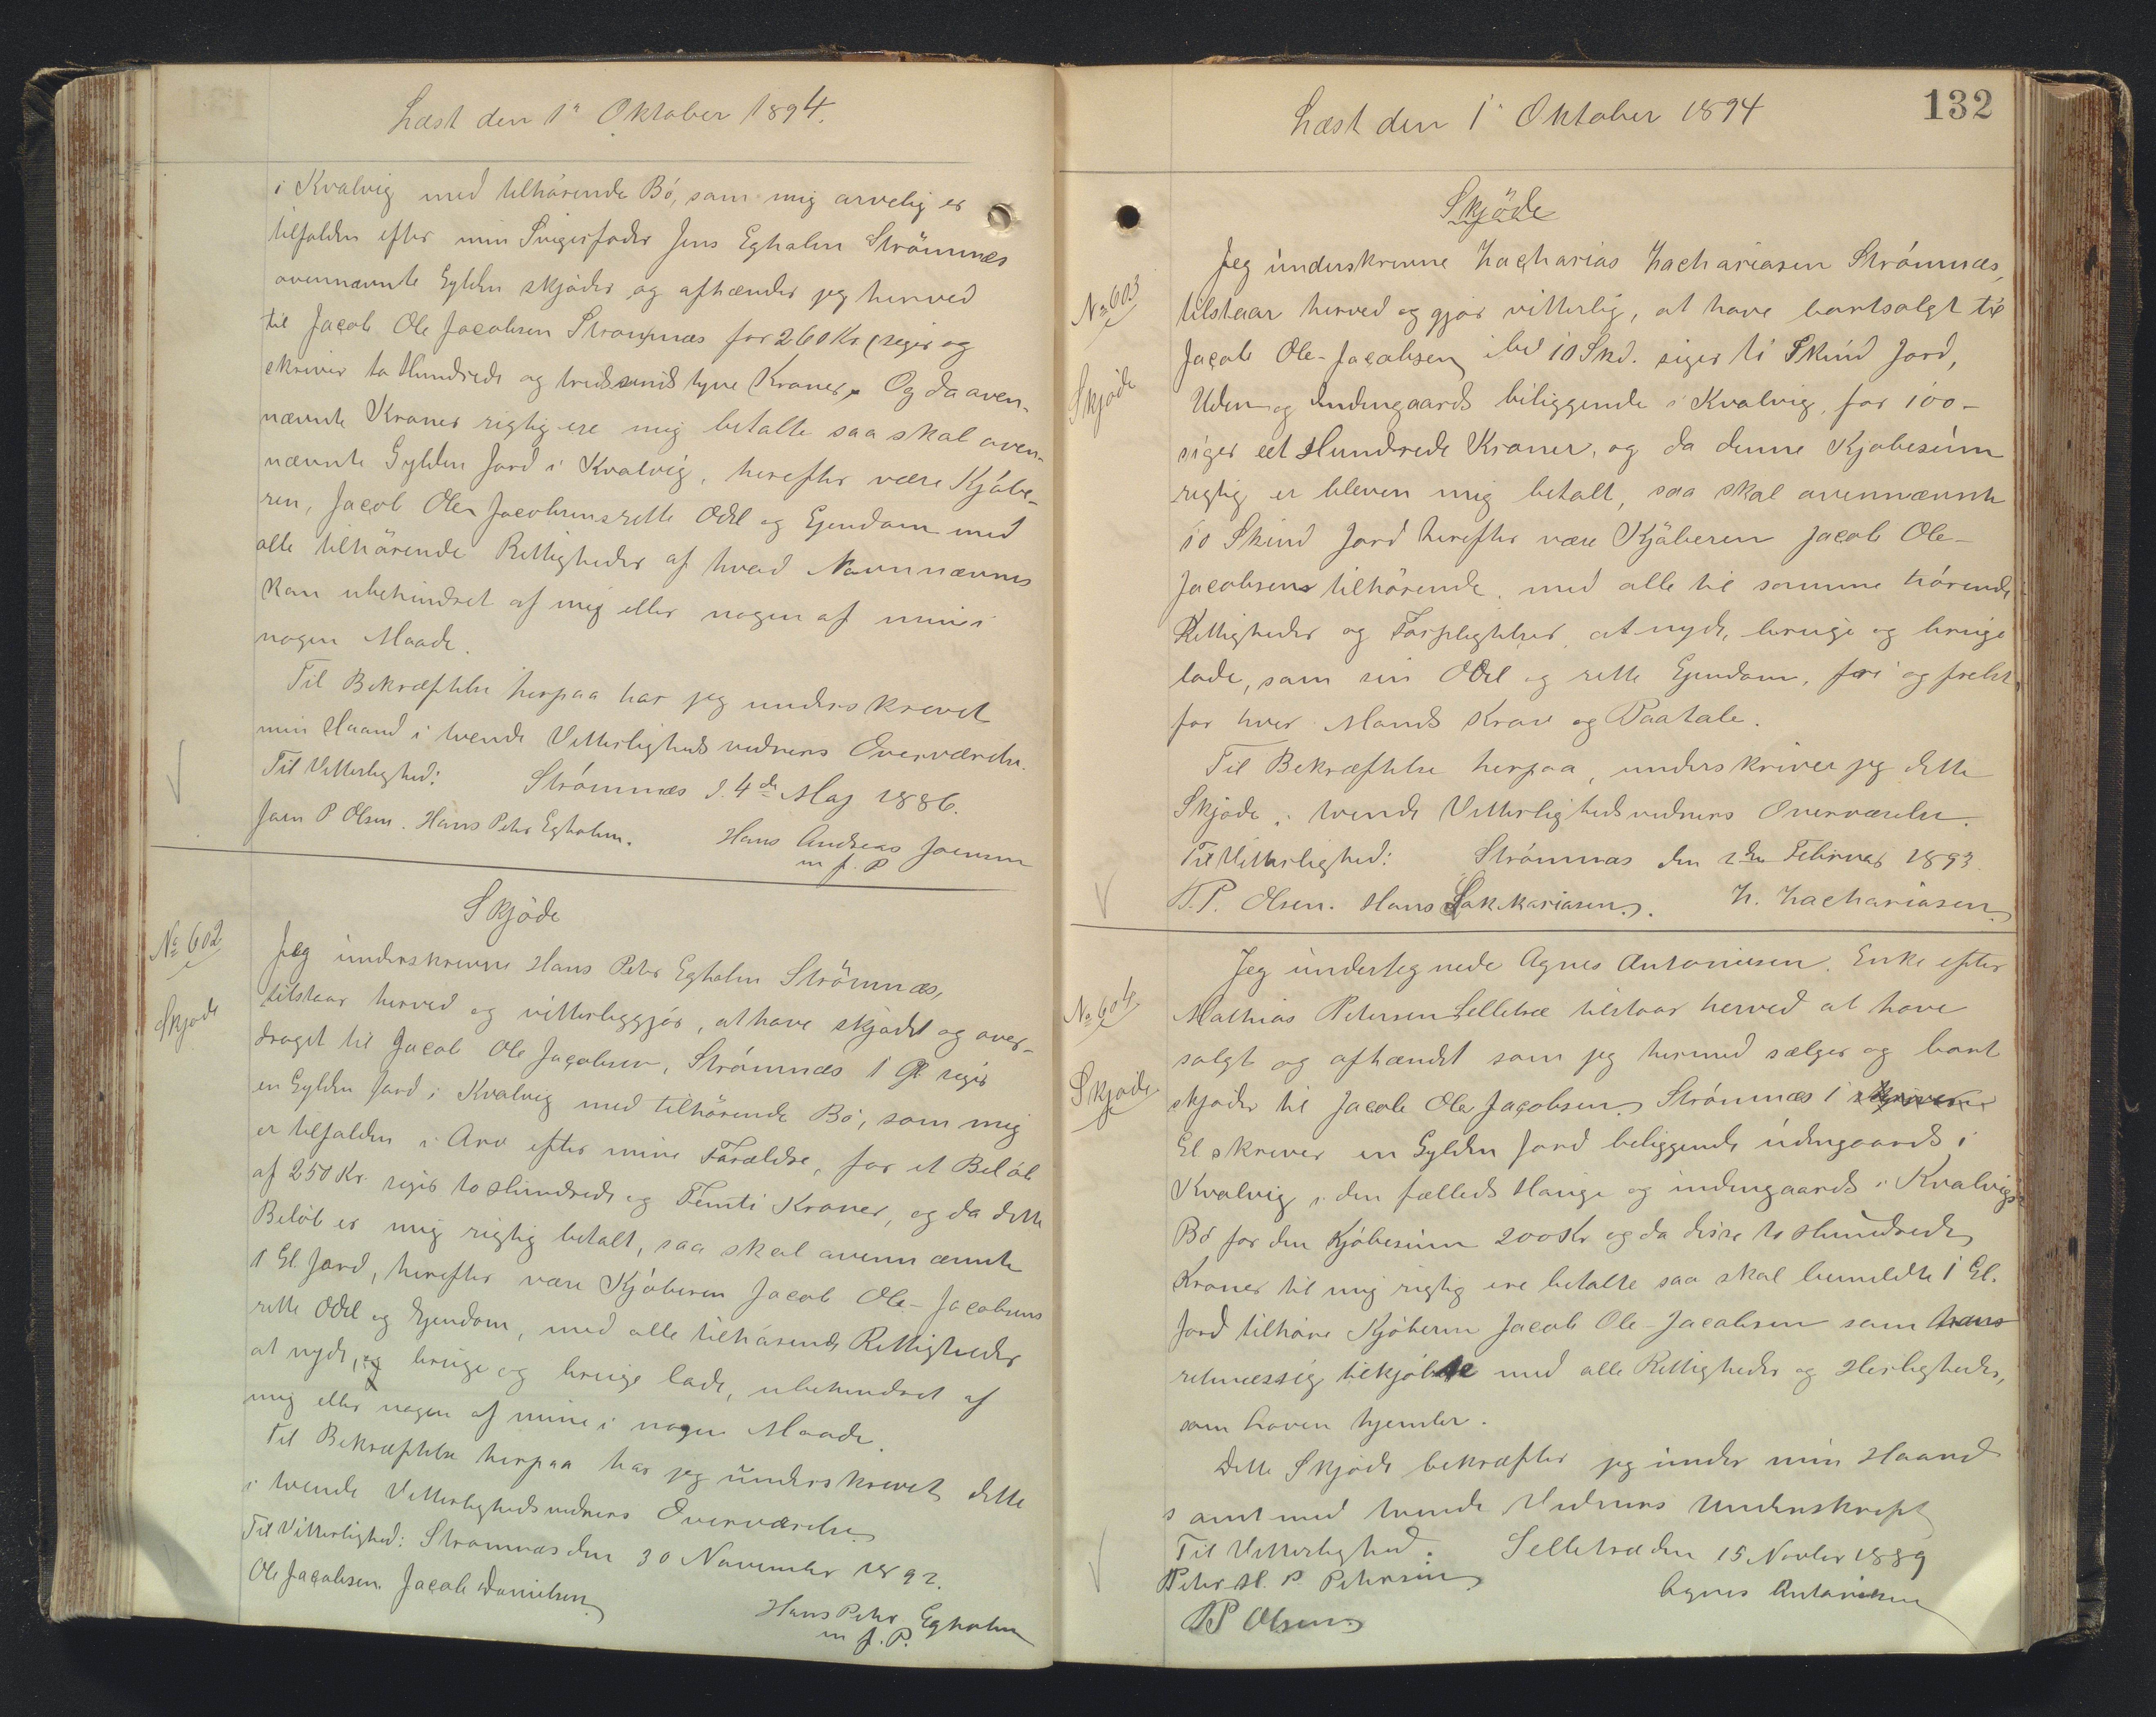 Læst den 1ᵃ Oktober 1894.
i Kvalvig med tilhörende Bö, som mig arvelig er
tilfalden efter min Svigerfader Jens Egholm Strömnæs
ovennævnte Gylden skjöder og afhænder jeg herved
til Jacob Ole Jacobsen Strömnæs for 260 Kr. (siger og
skriver to Hundrede og tredsinds tyve Kroner. Og da oven-
nævnte Kroner rigtig ere mig betalte saa skal oven-
nævnte Gylden Jord i Kvalvig, herefter være Kjöbe-
ren, Jacob Ole Jacobsens rette Odel og Ejendom med
alle tilhörende Rettigheder af hvad Navn nævnes
kan ubehindret af mig eller nogen af mine i
nogen Maade.
Til Bekræftelse herpaa har jeg underskrevet
min Haand i tvende Vitterlighedsvidners Overværelse.
Til Vitterlighed: Strömnæs d. 4de Maj 1886.
Joen P Olsen. Hans Peter Egholm. Hans Andreas Joensen
m f. P
Skjöde
№ 602
Skjöde
Jeg underskrevne Hans Peter Egholm Strömnæs,
tilstaar herved og vitterliggjör, at have skjödet og over-
draget til Jacob Ole Jacobsen, Strömnæs 1 Gl. siger
en Gylden Jord i Kvalvig med tilhörende Bö, som mig
er tilfalden i Arv efter mine Forældre, for et Belöb
af 250 Kr. siger to Hundrede og Femti Kroner, og da dette
Belöb er mig rigtig betalt, saa skal ovennævnte
1 Gl. Jord, herefter være Kjöberen Jacob Ole-Jacobsens
rette Odel og Ejendom, med alle tilhörende Rettigheder
at nyde, og bruge og bruge lade, ubehindret af
mig eller nogen af mine i nogen Maade.
Til Bekræftelse herpaa har jeg underskrevet dette
i tvende Vitterlighedsvidners Overværelse
Til Vitterlighed: Strömnæs den 30 November 1892.
Ole Jacobsen. Jacob Danielsen
Hans Peter Egholm
m f. P.
Læst den 1ᵃ Oktober 1894
132
Skjöde
№ 603
Skjöde
Jeg underskrevne Zacharias Zachariasen Strömnæs,
tilstaar herved og gjör vitterlig, at have bortsolgt til
Jacob Ole-Jacobsen 10 Skd. siger ti Skind Jord,
Uden og Indengaards beliggende i Kvalvig, for 100-
siger eet Hundrede Kroner, og da denne Kjöbesum
rigtig er bleven mig betalt, saa skal ovennævnte
10 Skind Jord herefter være Kjöberen Jacob Ole-
Jacobsens tilhörende, med alle til samme hörende
Rettigheder og Forpligtelser at nyde, bruge og bruge
lade, som sin Odel og rette Ejendom, fri og frelst
for hver Mands Krav og Paatale.
Til Bekræftelse herpaa, underskriver jeg dette
Skjöde i tvende Vitterlighedsvidners Overværelse.
Til Vitterlighed: Strömnæs den 2den Februar 1893.
P. Olsen. Hans Sakkariasen. Z. Zachariasen
№ 604
Skjöde
Jeg undertegnede Agnes Antoniusen. Enke efter
Mathias Petersen Selletræ tilstaar herved at have
solgt og afhændet som jeg hermed sælger og bort
skjöder til Jacob Ole Jacobsen, Strömnæs 1 skriver
Gl skriver en Gylden Jord beliggende udengaards i
Kvalvig i den fælleds Hauge og indengaards i Kvalvigs
Bö for den Kjöbesum 200 Kr og da disse to Hundrede
Kroner til mig rigtig ere betalte saa skal bemeldte 1 Gl.
Jord tilhöre Kjöberen Jacob Ole-Jacobsen som hans
retmæssig tilkjöbte med alle Rettigheder og Herligheder,
som Loven hjemler.
Dette Skjöde bekræfter jeg under min Haand
samt med tvende Vidners Underskrift
Til Vitterlighed. Selletræ den 15 Novbr 1889
Peter H. P. Petersen Agnes Antoniusen
P Olsen